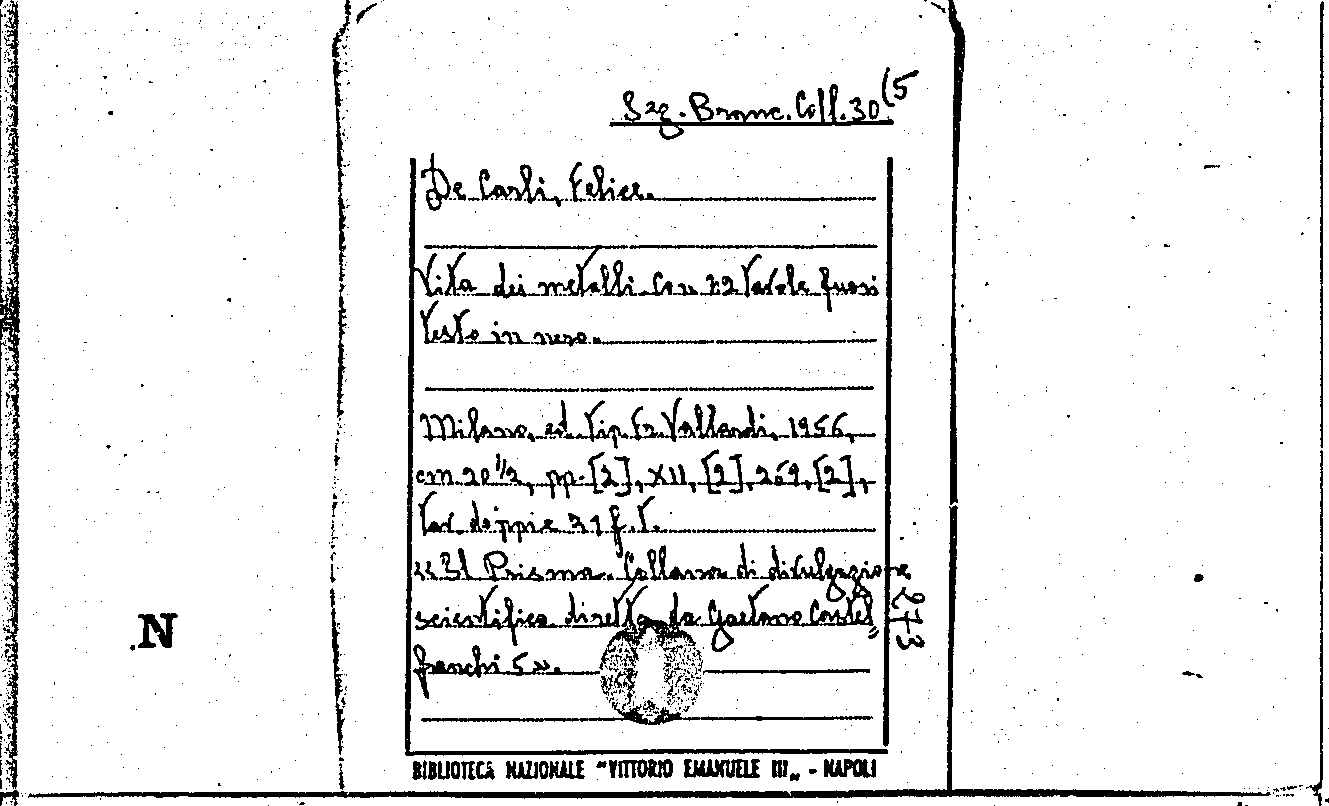 Sez. Branc. Coll. 30 (5
De Carli, Felice.
Vita dei metalli. Con 22 tavole fuori
testo in nero.
Milano, ed. tip. Fr. Vallardi, 1956,
cm 20 1/2, pp. [2], XII, [2], 269, [2],
tav. doppie 21 f. t.
«Il Prisma. Collana di divulgazione
scientifica diretta da Gaetano Castel„
franchi 5».
273
N
BIBLIOTECA NAZIONALE "VITTORIO EMANUELE III„ - NAPOLI